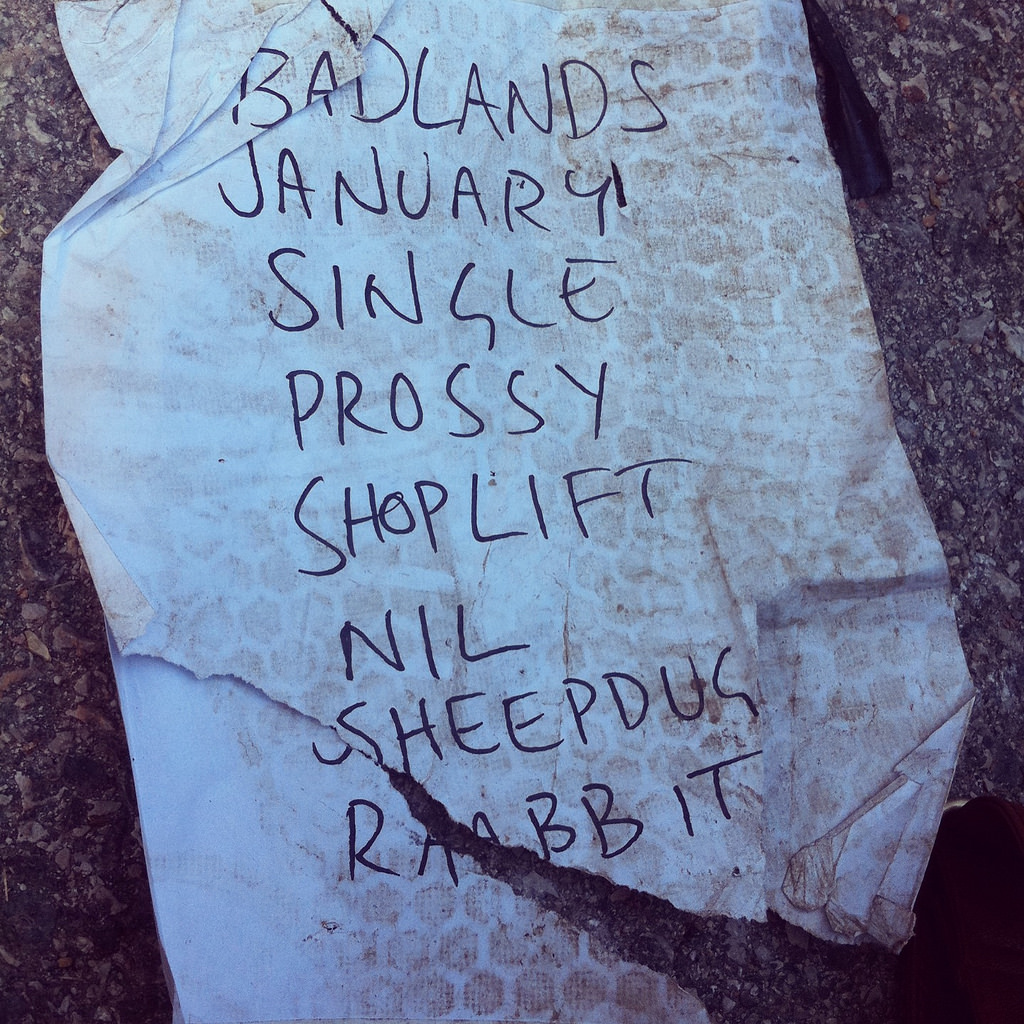 BADLANDS
JANUARY
SINGLE
PROSSY
SHOPLIFT
NIL
SHEEPDUG
RABBIT